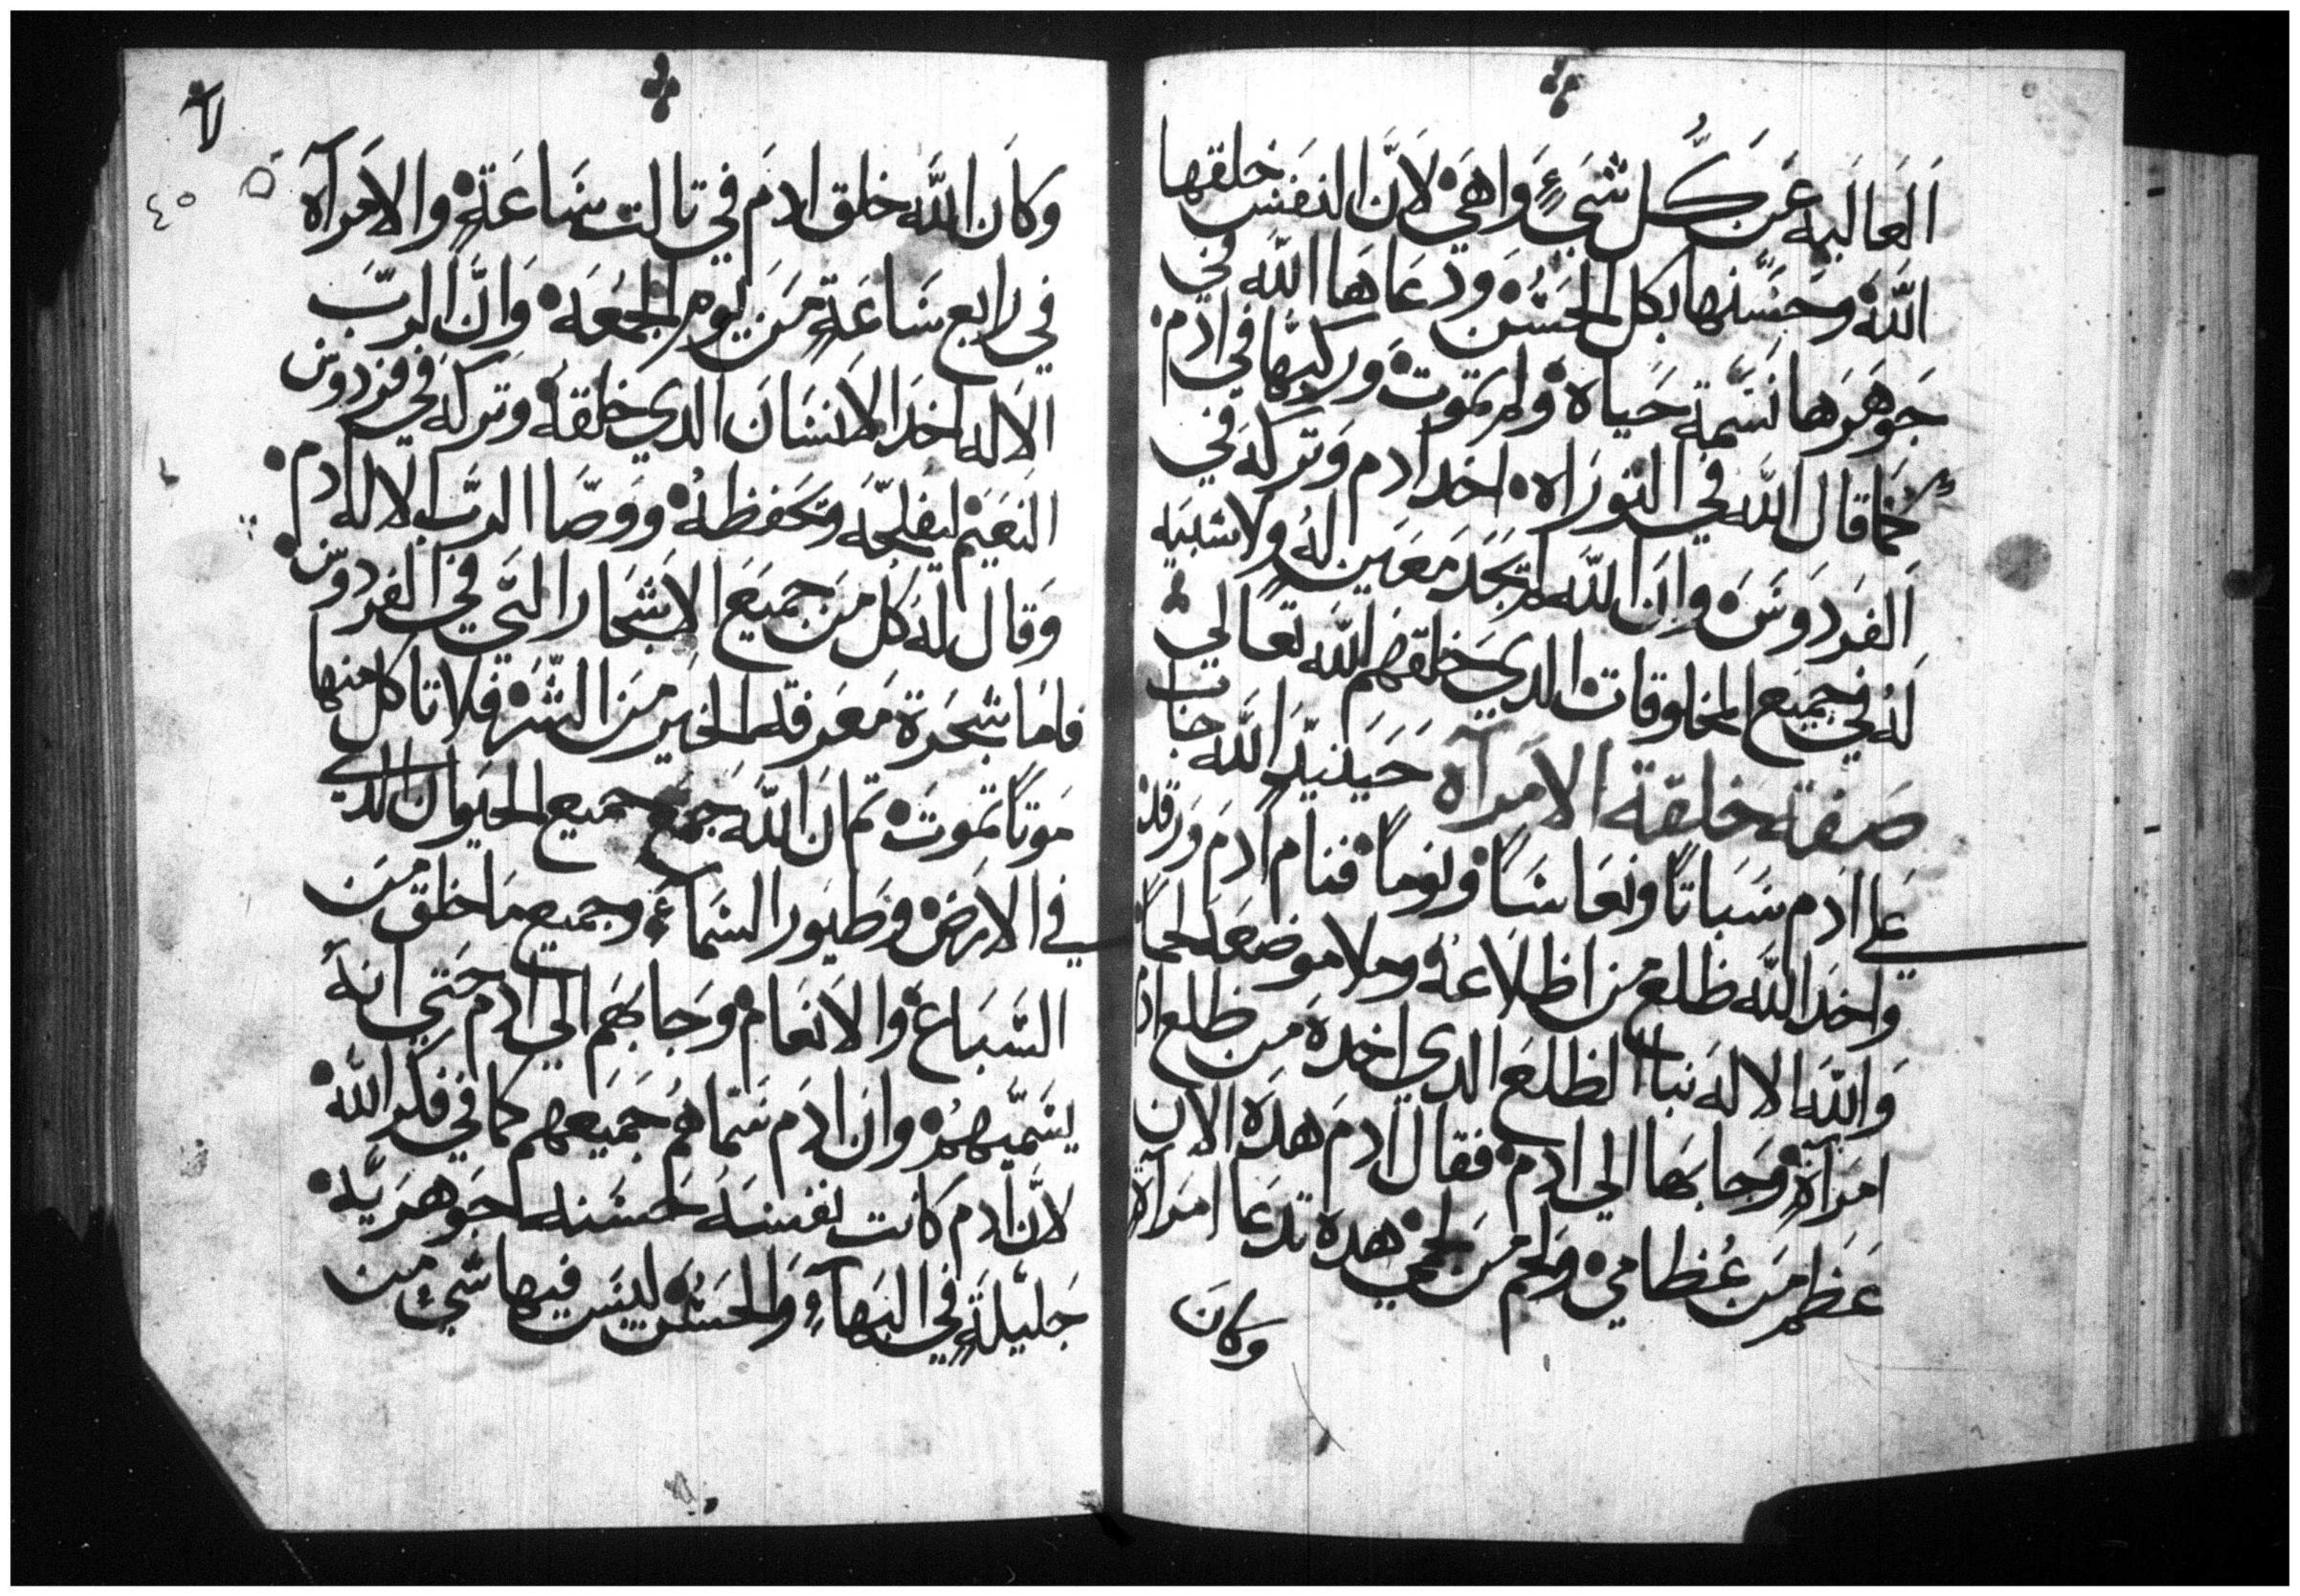 اَلعَاليه عَن كُل شَيءٍ وَاهيَ لاَنّ النفَس خلقها
اللهَ وحَسّنها بكل الحَسُن ودَعَاهَا الله في
جَوهَرَها نسَمة حَياه ولم تموت وركبّها في ادَم
كما قال الله في التورَاه اخد ادم وَتركه في
اَلفردَوسَ وان الله لم تجَد مَعَين لهُ ولا شبيَه
لهُ في جميَع المخلوقات الدي خلقهم الله تعالي
صَفة خلقة الامَرآه حَينيدٍ الله جاب
عَلي ادَم سَباتاً ونعَاسَاً ونوماً فنام ادَم وَرقد
واخدَ الله ظلع من اظلاعهُ وملا موضعَه لحماً
وَاللهَ الالهَ نبا الظلعَ الدي اخدهَ من ظلع ادم
امرَآةٍ وَجابهَا الي ادم فقال ادمَ هدَه الان
عَظم مَن عُظامي ولحم مَن لحمي هده تدعَا امرَآةٍ
وكانَ
٤٥
وكاَن الله خلق ادمَ في تالت سَاعَةٍ والامَرآه
في رابع سَاعَةٍ مَن يوم الجمعَه وَانَّ الربّ
الاَله اخدَ الانسَان الدي خلقهُ وتركه في فردوس
النعَيَم ليفلحّه وتحفظهُ ووَصّا الربّ الاله ادم
وَقال لهَ كل مَن جميَع الاشجار التي في الفردوس
فامَا شجَرة مَعَرفة الخيَر مَن الشرَ فلا تاكل منها
مَوتاً تموتَ تم ان اللهَ جمعَ جميع الحيَوان الدي
في الارَض وَطيَور السَماءِ وجميع مَا خلق مَن
السَباعَ والاَنعَام وَجابهَم الي ادَم حَتي انهُ
يسَميّهمُ وان ادَم سَمّاهُم جَميَعهم كما في فكر الله
لانّ ادم كانت نفسَه حَسَنه جَوهرَيّه
جَليَلةٍ في البَهآءِ وَالحَسُن ليسَ فيها شيءٍ من